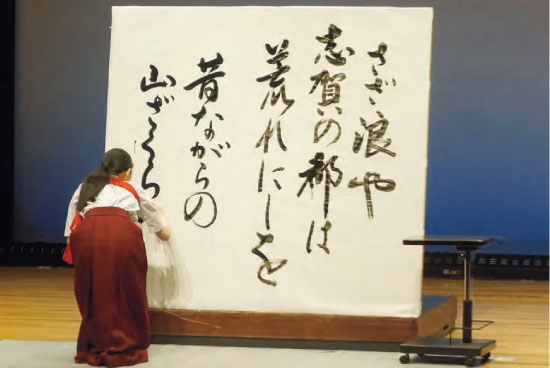 さざ浪や
志賀の都は
荒れにしを
昔ながらの
山ざくら